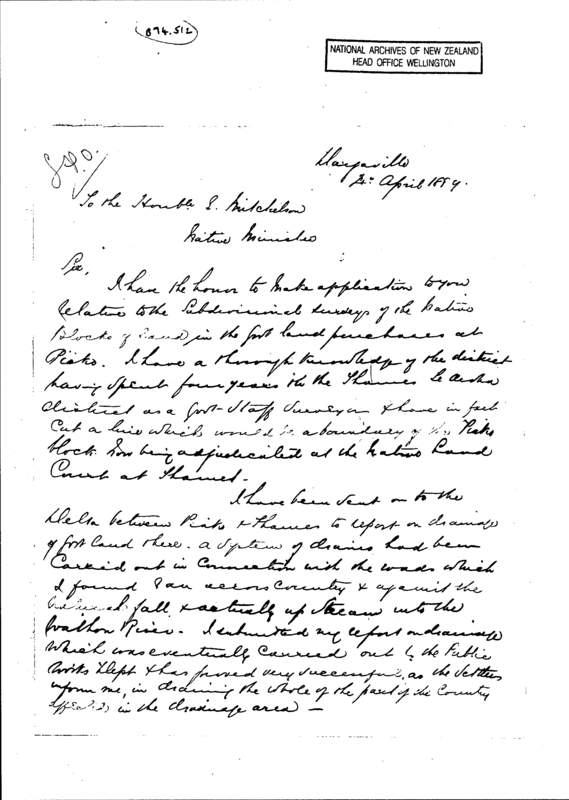 874.512
NATIONAL ARCHIVES OF NEW ZEALAND
HEAD OFFICE WELLINGTON
Dargaville
2 April 1889.
To the Honble E. Mitchelson
Native Minister
Sir,
I have the honor to make application to you
relative to the Subdivisional Surveys of the Native
Blocks of Land in the Govt land purchases at
Piako. I have a through knowledge of the district
having spent four years in the Thames Te Aroha
district as a Govt Staff Surveyor & have in fact
cut a line which would be a boundary of the Piako
block now being adjudicated at the Native Land
Court at Thames.
I have been sent on to the
Delta between Piako & Thames to report on drainage
of Govt land there. A system of drains had been
carried out in connection with the roads which
I found ran across country & against the
fall & actually up stream into the
River. I submitted my report on drainage
which was eventually carried out by the Public
Works Dept & has proved very successful, as the Settlers
inform me, in draining the whole of the part of the Country
in the drainage area —